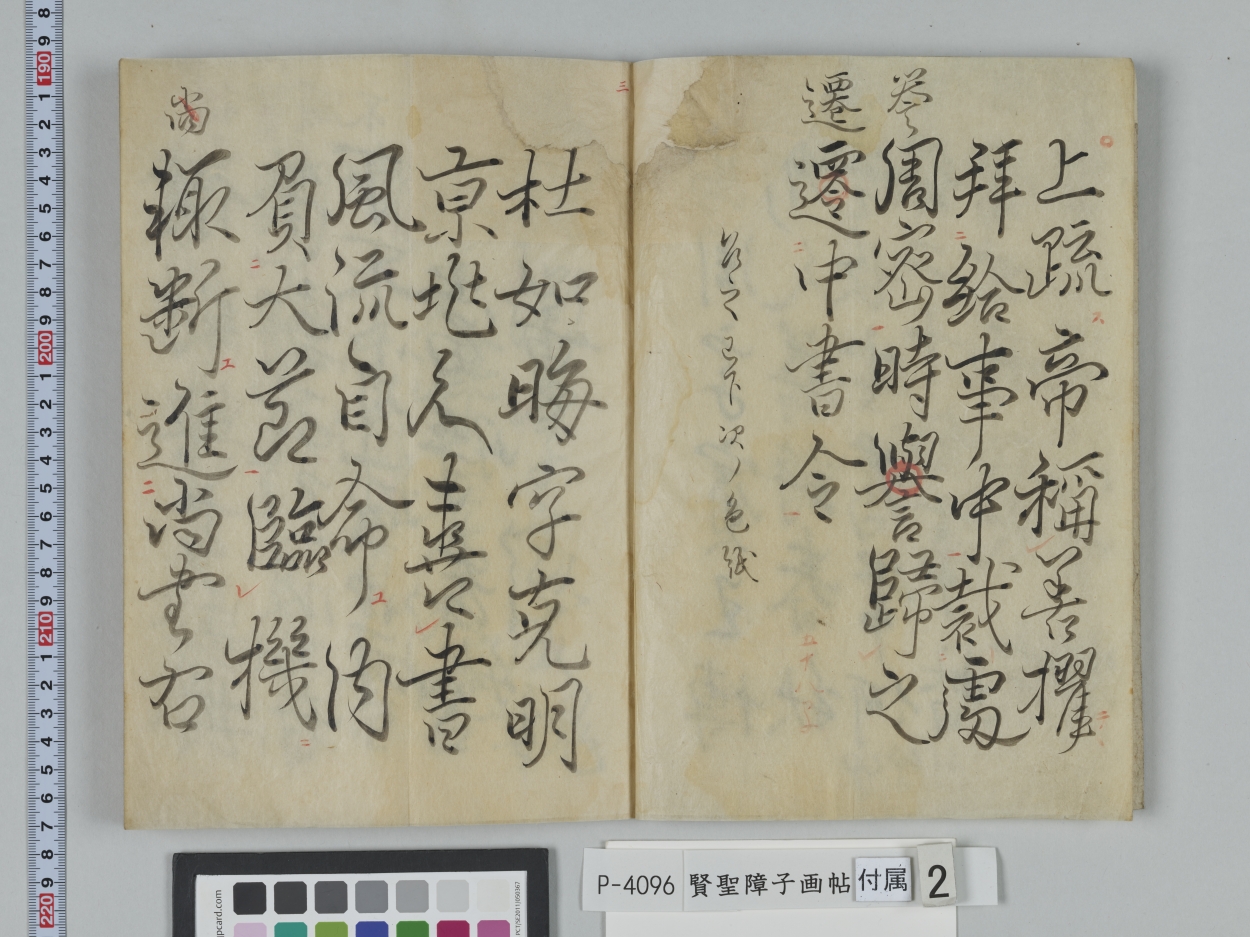 上疏帝稱善擢
拜給事中裁處
周密時譽歸之
遷
遷中書令
已下次ノ色紙
三
杜如晦字克明
京兆人喜書
風流自命内
負大節臨機
輙断進尚書右
尚
P-4096 賢聖障子画帖 付属 2